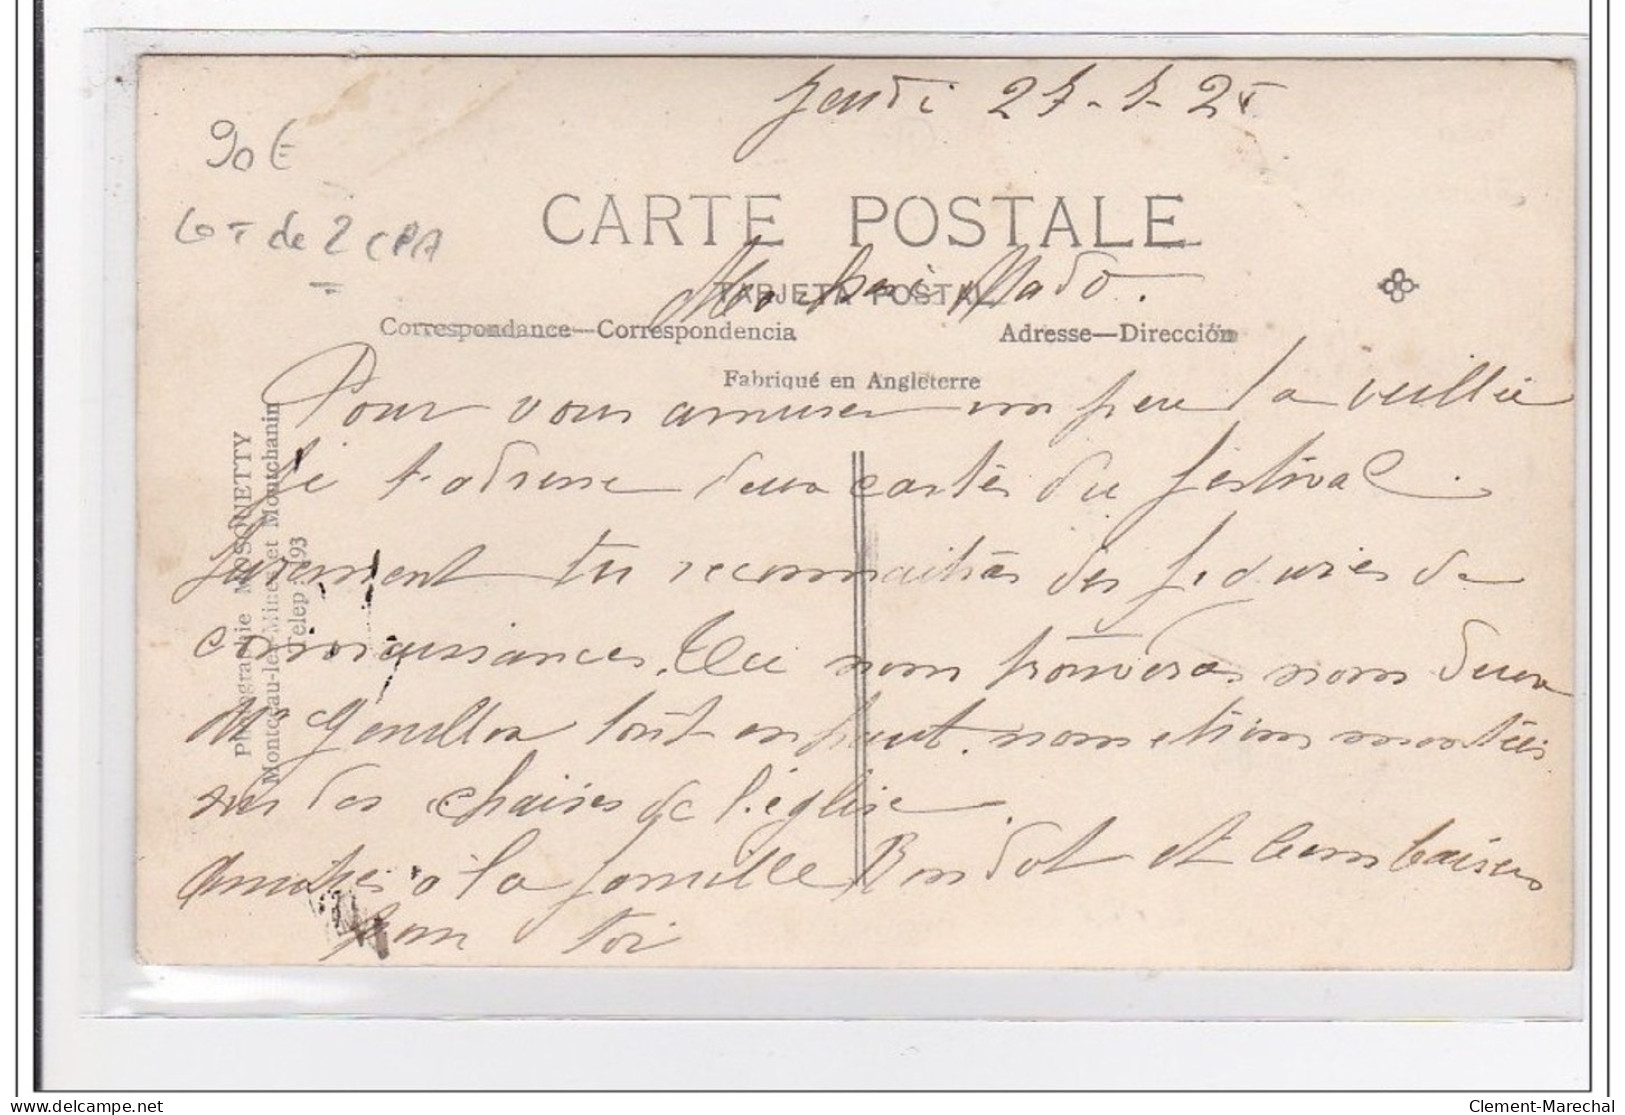 Jeudi
90 €
Lot de 2 CPA
CARTE POSTALE
TARJETA POSTAL
Ma chère Mado.
Correspondance—Correspondencia
Adresse—Dirección
Fabriqué en Angleterre
Photographie MOSQUETTY
Montceau-les-Mines et Montchanin
Télep 1.93
Pour vous amuser un peu la veillée
je t'adresse deux cartes du festival.
surement tu reconnaitras des figures de
connaissances. Tu nous trouveras nous deux
Me Genillon tout en haut. nous étions montées
sur des chaises de l'église.
Amitiés à la famille Bondot et bons baisers
pour toi
Clement-Marechal
delcampe.net